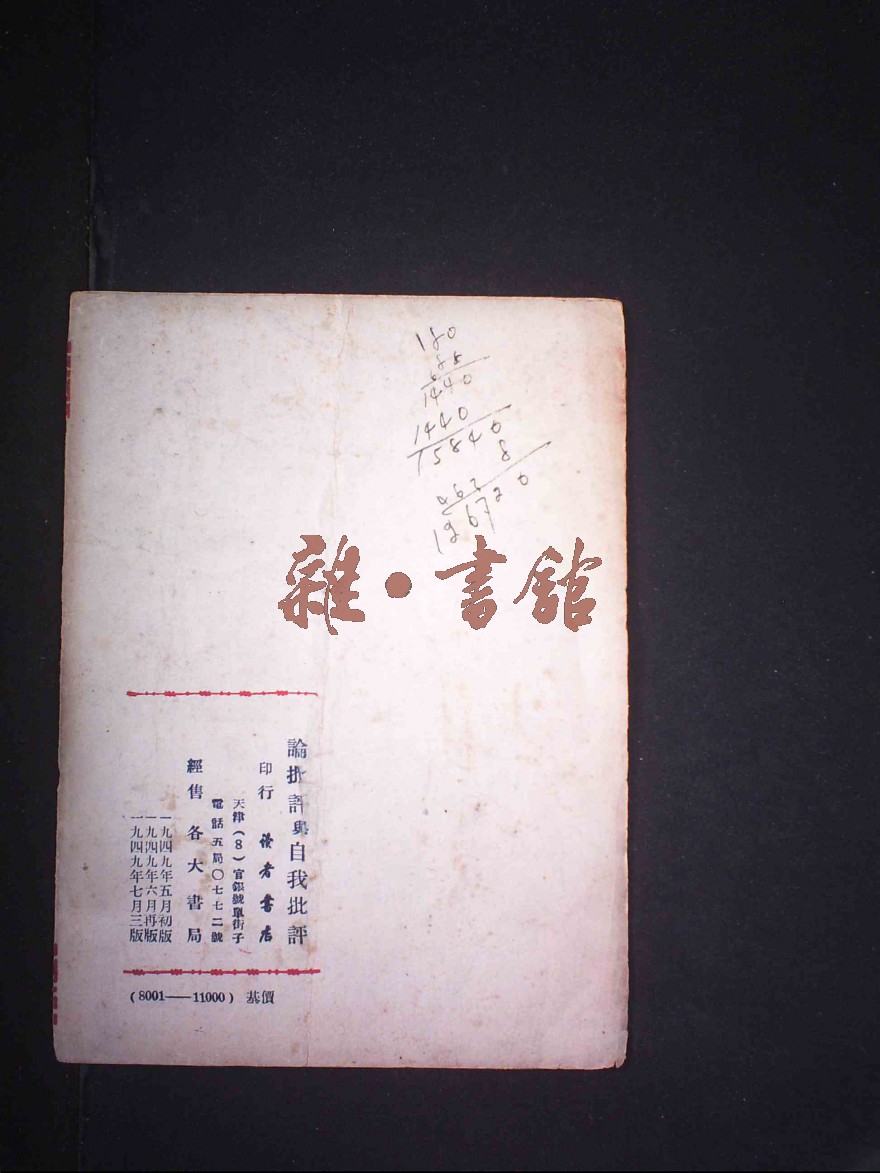 180
88
1440
1440
15840
8
126720
雜·書館
論批評與自我批評
印行 讀者書店
天津(8)官銀號單街子
電話五局〇七七二號
經售 各大書局
一九四九年五月初版
一九四九年六月再版
一九四九年七月三版
(8001——11000) 基價